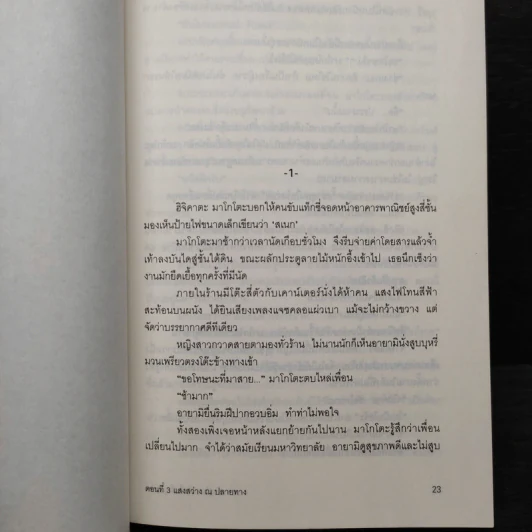 -1-
ฮิจิคาตะ มาโกโตะบอกให้คนขับแท็กซี่จอดหน้าอาคารพาณิชย์สูงสี่ชั้น
มองเห็นป้ายไฟขนาดเล็กเขียนว่า ‘สเนก’
มาโกโตะมาช้ากว่าเวลานัดเกือบชั่วโมง จึงรีบจ่ายค่าโดยสารแล้วจ้ำ
เท้าลงบันไดสู่ชั้นใต้ดิน ขณะผลักประตูลายไม้หนักอึ้งเข้าไป เธอนึกเซ็งว่า
งานมักยืดเยื้อทุกครั้งที่มีนัด
ภายในร้านมีโต๊ะสี่ตัวกับเคาน์เตอร์นั่งได้ห้าคน แสงไฟโทนสีฟ้า
สะท้อนบนผนัง ได้ยินเสียงเพลงแจซคลอแผ่วเบา แม้จะไม่กว้างขวาง แต่
จัดว่าบรรยากาศดีทีเดียว
หญิงสาวกวาดสายตามองทั่วร้าน ไม่นานนักก็เห็นอายามินั่งสูบบุหรี่
มวนเพรียวตรงโต๊ะข้างทางเข้า
“ขอโทษนะที่มาสาย...” มาโกโตะตบไหล่เพื่อน
“ช้ามาก”
อายามิยื่นริมฝีปากอวบอิ่ม ทำท่าไม่พอใจ
ทั้งสองเพิ่งเจอหน้าหลังแยกย้ายกันไปนาน มาโกโตะรู้สึกว่าเพื่อน
เปลี่ยนไปมาก จำได้ว่าสมัยเรียนมหาวิทยาลัย อายามิดูสุขภาพดีและไม่สูบ
ตอนที่ 3 แสงสว่าง ณ ปลายทาง
23